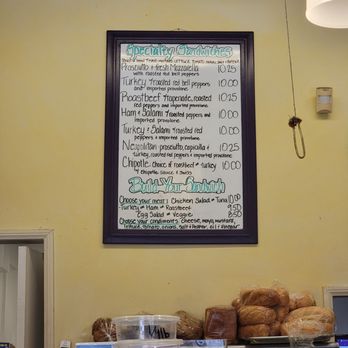 Specialty Sandwiches
Prosciutto + Fresh Mozzarella 10.25
with roasted red bell peppers
Turkey roasted red bell peppers 10.00
and imported provolone
Roastbeef tapenade, roasted 10.25
red peppers and imported provolone
Ham + Salami roasted red peppers 10.00
and imported provolone
Turkey + Salami roasted red 10.00
peppers + imported provolone
Neapolitan prosciutto, capicolla + 10.25
turkey, roasted red peppers + imported provolone
Chipotle choice of roastbeef or turkey 10.00
chipotle sauce + swiss
Build Your Sandwich
Choose your meat: Chicken Salad Tuna 10.00
Turkey Ham Roastbeef 9.50
Egg Salad Veggie 8.50
Choose your condiments: cheese, mayo, mustard,
lettuce, tomato, onions, salt + pepper, oil + vinegar